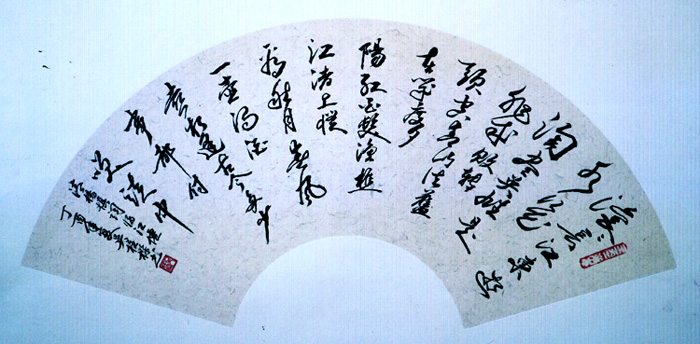 滚々长江东逝
水浪花
淘尽英雄是
非成败转
头空青山依旧
在几度夕
陽红白髮渔樵
江渚上惯
看秋月春風
一壶浊酒
喜相逢古今多少
事都付
笑谈中
杨慎词临江仙
丁酉